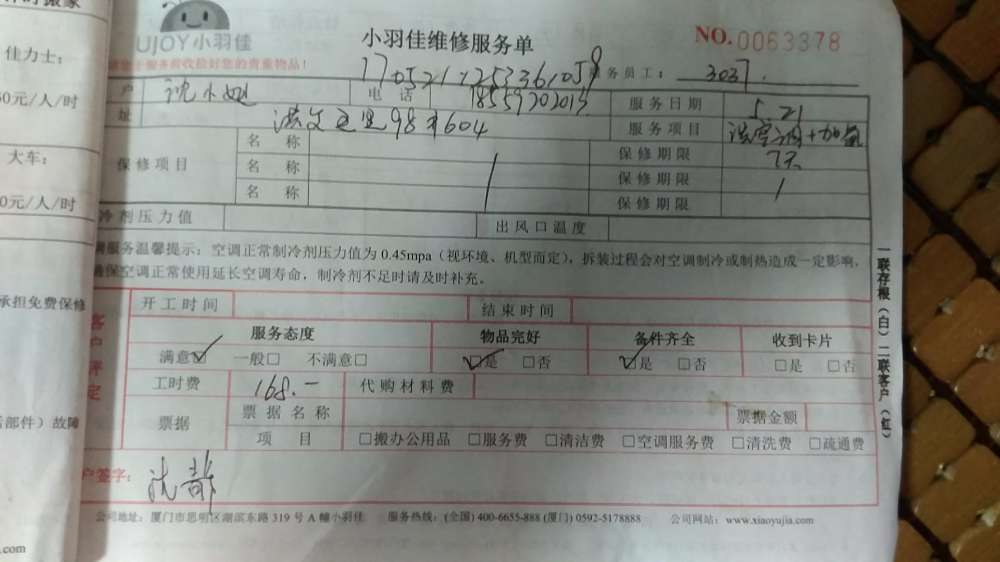 佳力士:
0元/人/时
大车:
0元/人/时
承担免费保修
部件）故障
.com
UJOY小羽佳
小羽佳维修服务单
NO.0063378
服务前收检好您的贵重物品！
服务员工: 3037.
户 沈小姐 电话 18559202015 服务日期 5.21
址 98 604 服务项目 洗空调+加氟
保修项目 名称 保修期限 7天
名称 保修期限
名称 保修期限
冷剂压力值 出风口温度
服务温馨提示: 空调正常制冷剂压力值为 0.45mpa（视环境、机型而定），拆装过程会对空调制冷或制热造成一定影响，
保空调正常使用延长空调寿命，制冷剂不足时请及时补充。
开工时间 结束时间
客户评定
服务态度 物品完好 备件齐全 收到卡片
满意☑ 一般□ 不满意□ ☑是 □否 ☑是 □否 □是 □否
工时费 168.- 代购材料费
票据 票据名称 票据金额
项目 □搬办公用品 □服务费 □清洁费 □空调服务费 □清洗费 □疏通费
户签字:
公司地址: 厦门市思明区湖滨东路 319 号 A 幢小羽佳 服务热线: (全国) 400-6655-888 (厦门) 0592-5178888 公司网站: www.xiaoyujia.com
一联存根（白）二联客户（红）